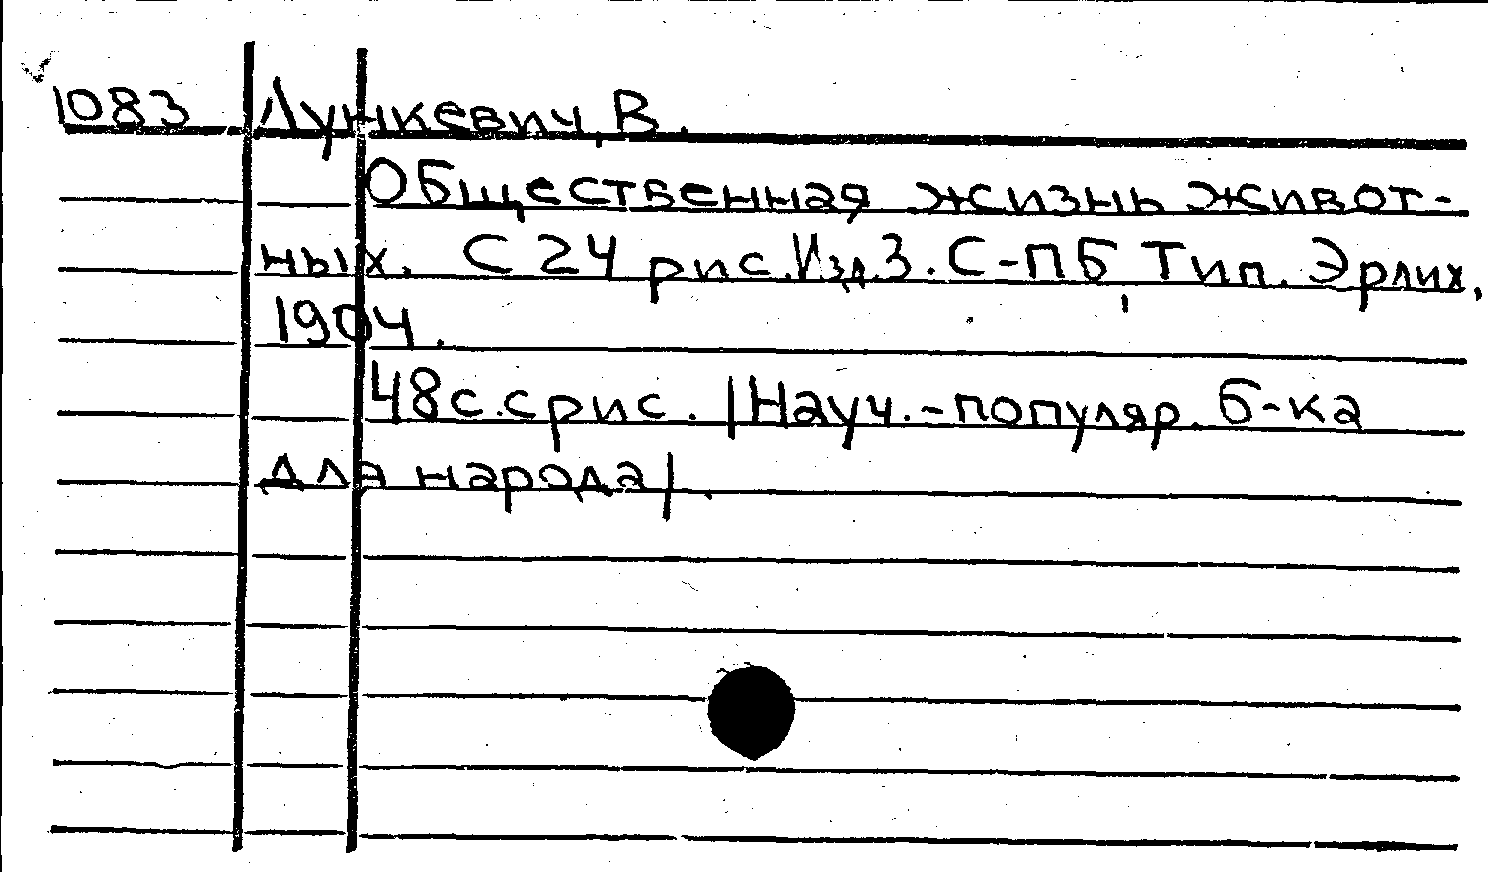 1083 Лункевич, В.
Общественная жизнь живот-
ных. С 24 рис. Изд. 3. С-ПБ, Тип. Эрлих,
1904.
48 с. с рис. |Науч.-популяр. б-ка
для народа|.